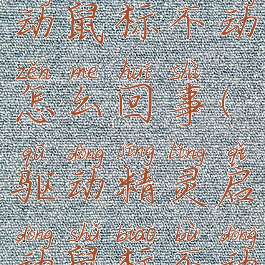 动鼠标不动
zěn me huí shì
怎么回事(
qū dòng jīng líng qǐ
驱动精灵启
dòng shǔ biāo bù dòng
动鼠标不动